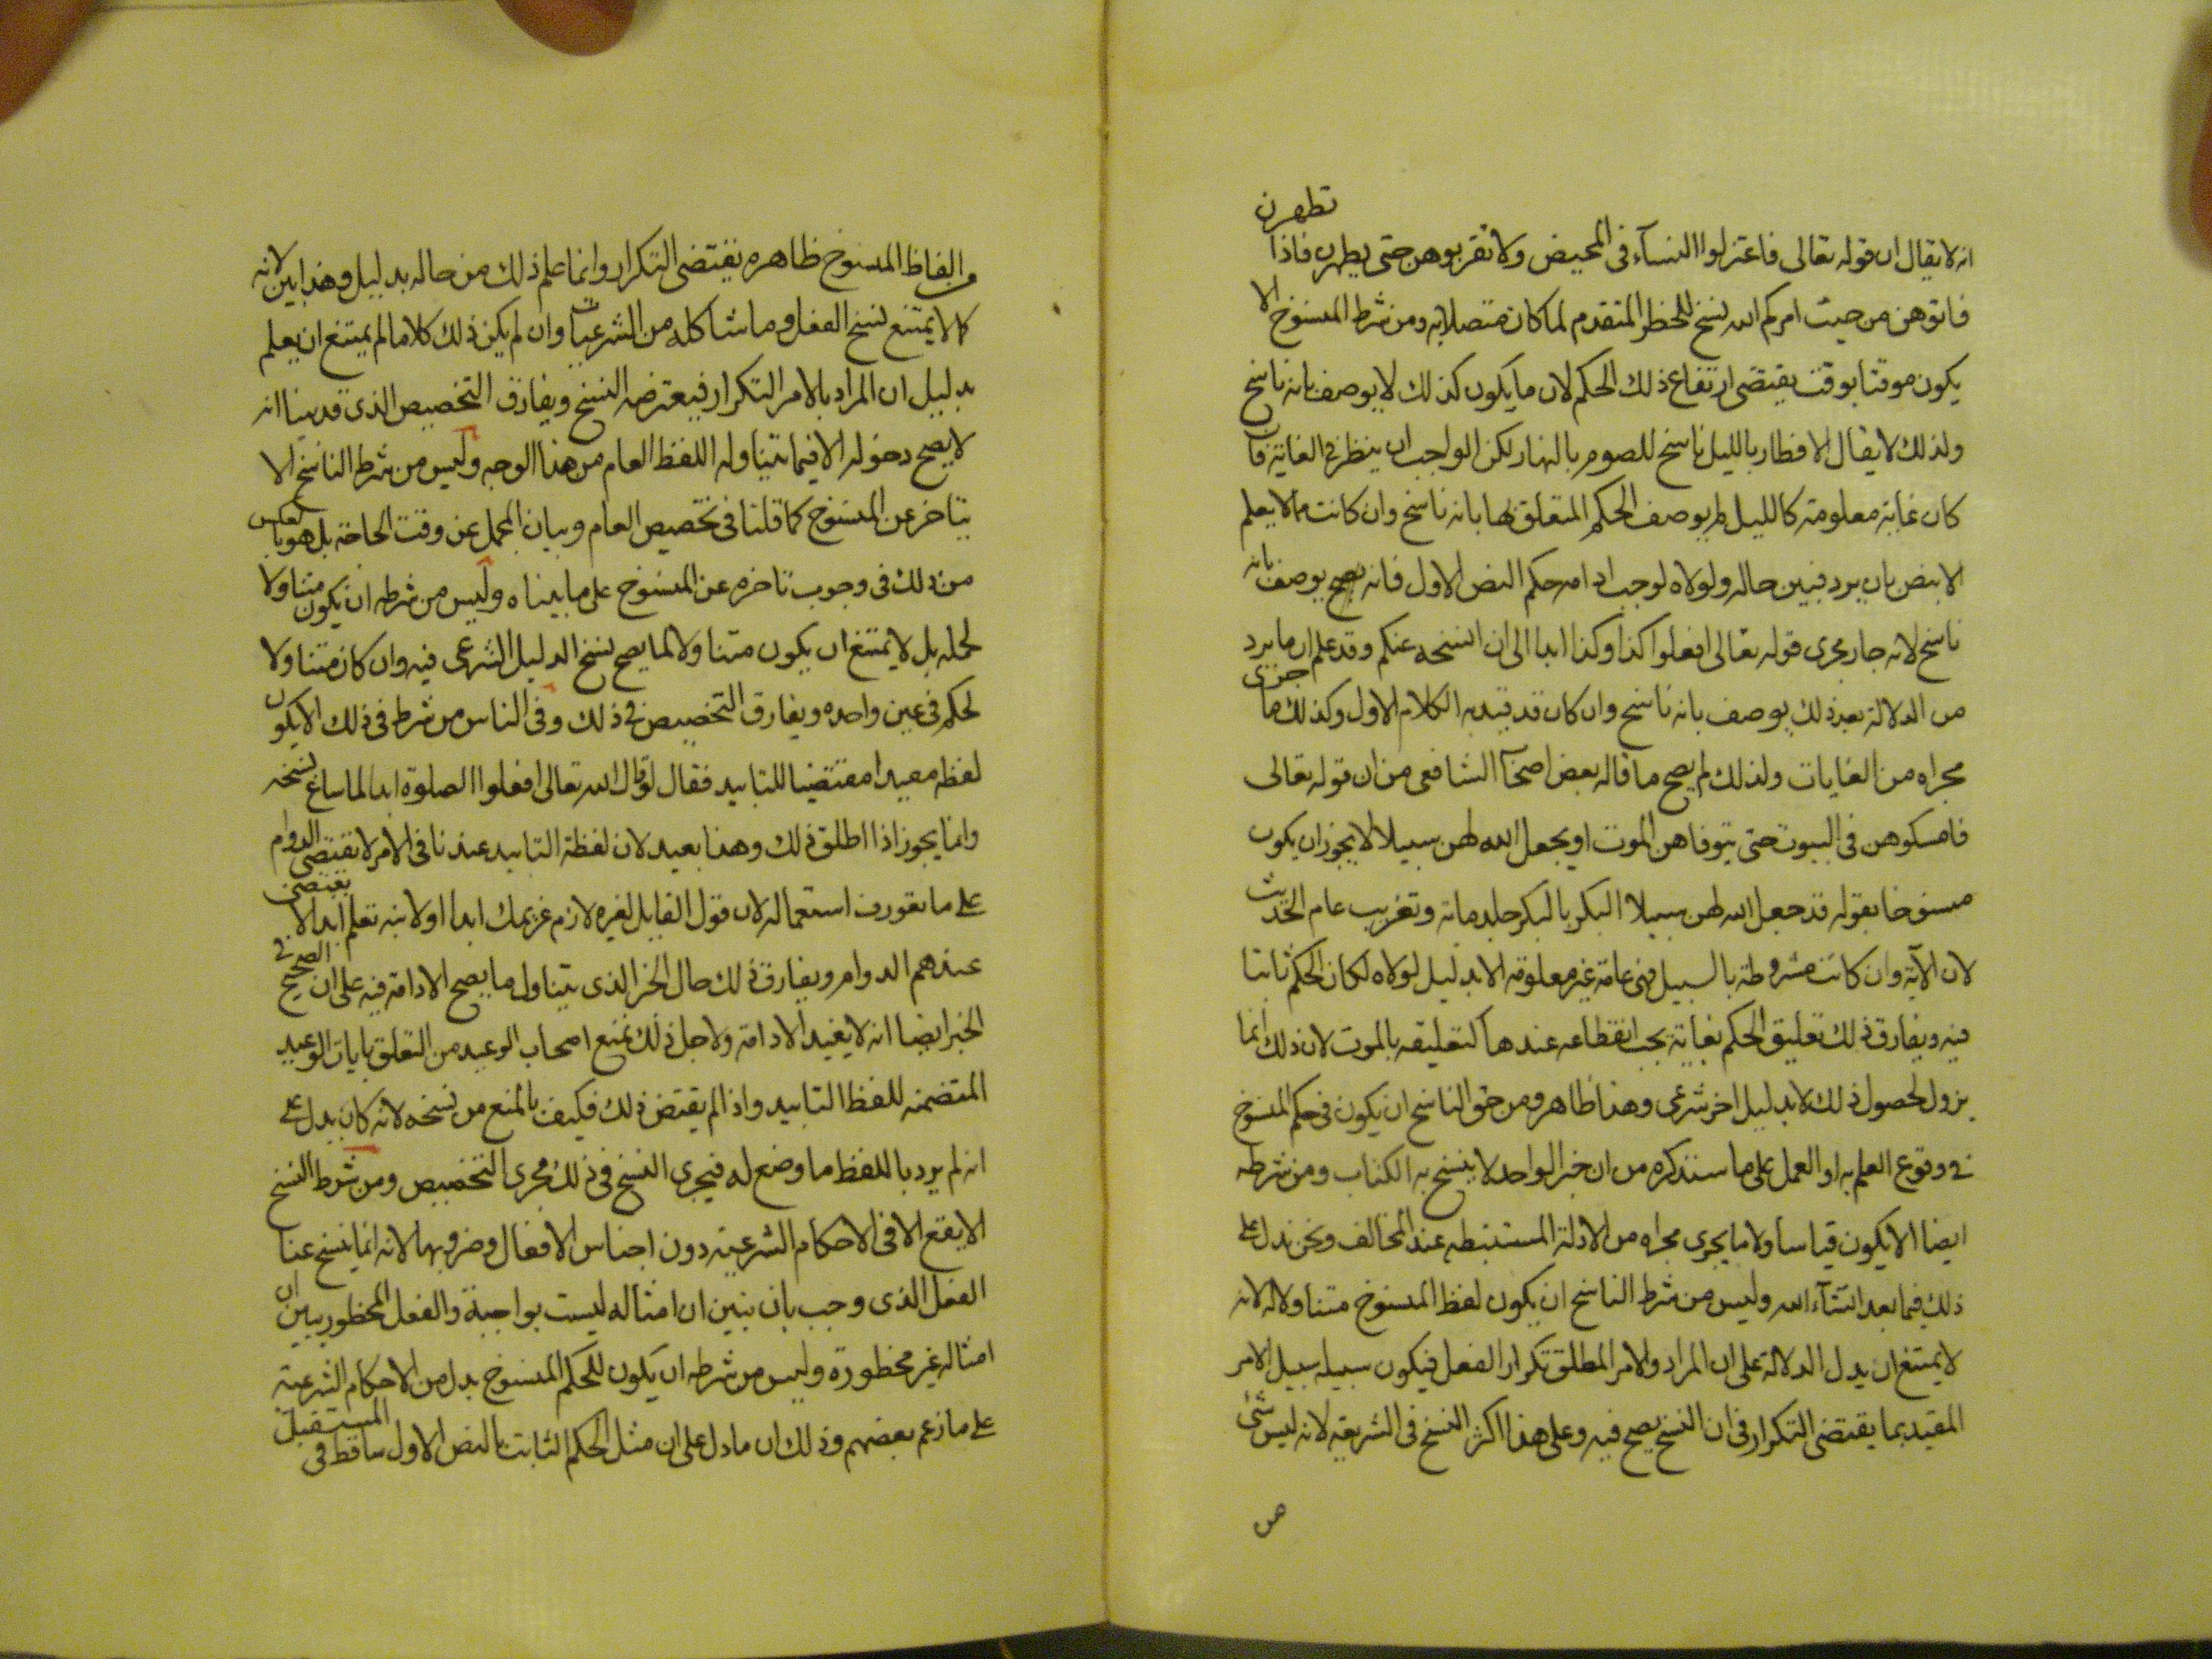 انه لا يقال ان قوله تعالى فاعتزلوا النسآء في المحيض ولا تقربوهن حتى يطهرن فاذا تطهرن
فاتوهن من حيث امركم الله نسخ للحظر المتقدم لما كان متصلا به ومن شرط المنسوخ الا
يكون موقتا بوقت يقتضى ارتفاع ذلك الحكم لان ما يكون كذلك لا يوصف بانه ناسخ
ولذلك لا يقال الافطار بالليل ناسخ للصوم بالنهار لكن الواجب ان ينظر في الغاية فان
كان غاية معلومة كالليل لم يوصف الحكم المتعلق لها بانه ناسخ وان كانت مما لا يعلم
الا بنص بان يرد فتبين حاله ولولاه لوجب ادامه حكم النص الاول فانه يصح يوصف بانه
ناسخ لانه جار مجرى قوله تعالى افعلوا كذا وكذا ابدا الى ان انسخه عنكم وقد علم ان ما يرد
من الدلالة بعد ذلك يوصف بانه ناسخ وان كان قد قيد به الكلام الاول وكذلك ما جرى
مجراه من الغايات ولذلك لم يصح ما قاله بعض اصحآ الشافعي من ان قوله تعالى
فامسكوهن في البيوت حتى يتوفاهن الموت او يجعل الله لهن سبيلا لا يجوز ان يكون
منسوخا بقوله قد جعل الله لهن سبيلا البكر بالبكر جلد مائة وتغريب عام الحديث
لان الآية وان كانت مشروطة بالسبيل فهى عامة غير معلومة الا بدليل لولاه لكان الحكم ثابتا
فيه ويفارق ذلك تعليق الحكم بغاية يجب انقطاعه عندها كتعليقه بالموت لان ذلك انما
يزول لحصول ذلك لا بدليل اخر شرعى وهذا ظاهر ومن حق الناسخ ان يكون في حكم المنسوخ
في وقوع العلم به او العمل على ما سنذكره من ان خبر الواحد لا ينسخ به الكتاب ومن شرطه
ايضا الا يكون قياسا ولا ما يجرى مجراه من الادلة المستنبطه عند المخالف ونحن ندل على
ذلك فيما بعد انشآء الله وليس من شرط الناسخ ان يكون لفظ المنسوخ متناولا له لانه
لا يمتنع ان يدل الدلالة على ان المراد والامر المطلق تكرار الفعل فيكون سبيله سبيل الامر
المقيد بما يقتضى التكرار في ان النسخ يصح فيه وعلى هذا اكثر النسخ في الشريعة لانه ليس شئ
من
من الفاظ المنسوخ ظاهره يقتضى التكرار وانما علم ذلك من حاله بدليل وهذا بين لانه
كما لا يمتنع نسخ الفعل وما شاكله من الشرعيات وان لم يكن ذلك كلاما لم يمتنع ان يعلم
بدليل ان المراد بالامر التكرار فيعترضه النسخ ويفارق التخصيص الذى قد بينا انه
لا يصح دخوله الا فيما يتناوله اللفظ العام من هذا الوجه وليس من شرط الناسخ الا
يتاخر عن المنسوخ كما قلنا في تخصيص العام وبيان المجمل عن وقت الحاجة بل هو بالعكس
من ذلك في وجوب تاخره عن المنسوخ على ما بيناه وليس من شرطه ان يكون متناولا
لجمله بل لا يمتنع ان يكون متناولا لما يصح نسخ الدليل الشرعى فيه وان كان متناولا
لحكم في عين واحده ويفارق التخصيص في ذلك وفى الناس من شرط في ذلك الا يكون
لفظه مفيدا مقتضيا للتابيد فقال لو قال الله تعالى افعلوا الصلوة ابدا لما ساغ نسخه
وانما يجوز اذا اطلق ذلك وهذا بعيد لان لفظة التابيد عندنا في الامر لا يقتضى الدوام
على ما تعورف استعماله لان قول القايل لغيره لازم غريمك ابدا او لابنه تعلم ابدا لا يقتضى
عندهم الدوام ويفارق ذلك حال الخبر الذى يتناول ما يصح الادامة فيه على ان الصحيح في
الخبر ايضا انه لا يفيد الادامة ولاجل ذلك نمنع اصحاب الوعيد من التعلق بايات الوعيد
المتضمنه للفظ التابيد واذا لم يقتض ذلك فكيف بالمنع من نسخه لانه كان يدل على
انه لم يرد باللفظ ما وضع له فيجرى النسخ في ذلك مجرى التخصيص ومن شرط النسخ
الا يقع الا في الاحكام الشرعية دون اجناس الافعال وضروبها لانه انما ينسخ عنا
الفعل الذى وجب بان يبين ان امثاله ليست بواجبة والفعل المحظور يبين ان
امثاله غير محظورة وليس من شرطه ان يكون للحكم المنسوخ بدل من الاحكام الشرعية
على ما زعم بعضهم وذلك ان ما دل على ان مثل الحكم الثابت بالنص الاول ساقط في المستقبل